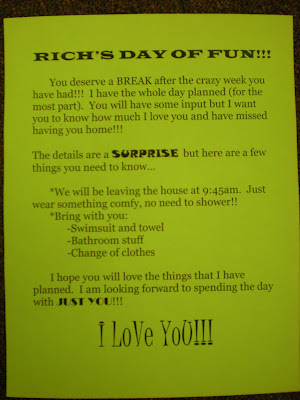 RICH'S DAY OF FUN!!!
You deserve a BREAK after the crazy week you
have had!!!  I have the whole day planned (for the
most part).  You will have some input but I want
you to know how much I love you and have missed
having you home!!!
The details are a SURPRISE but here are a few
things you need to know...
*We will be leaving the house at 9:45am.  Just
wear something comfy, no need to shower!!
*Bring with you:
-Swimsuit and towel
-Bathroom stuff
-Change of clothes
I hope you will love the things that I have
planned.  I am looking forward to spending the day
with JUST YOU!!!
I LoVe YoU!!!